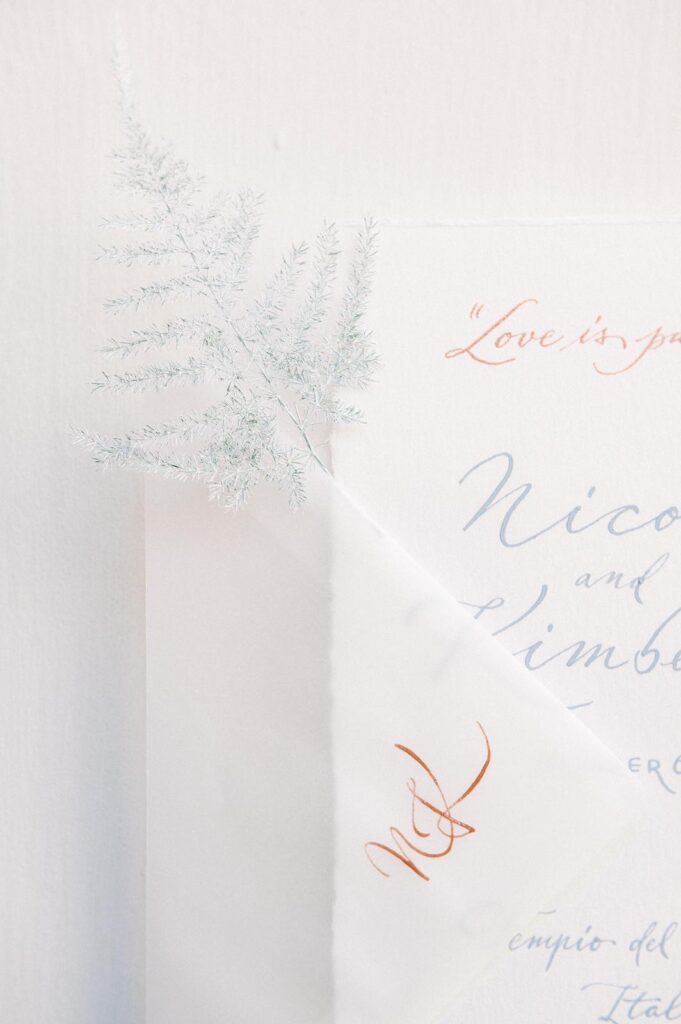 "Love is
Nico
and
Kimbe
ER
NK
empio del
Ital